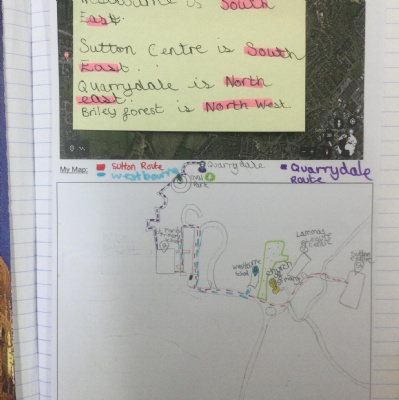 is South
East.
Sutton Centre is South
East.
Quarrydale is North
east.
Briley forest is North West.
My Map:
Sutton Route
westbourne
Quarrydale
Quarrydale
Route
Park
westbourne
Lammas
Sutton